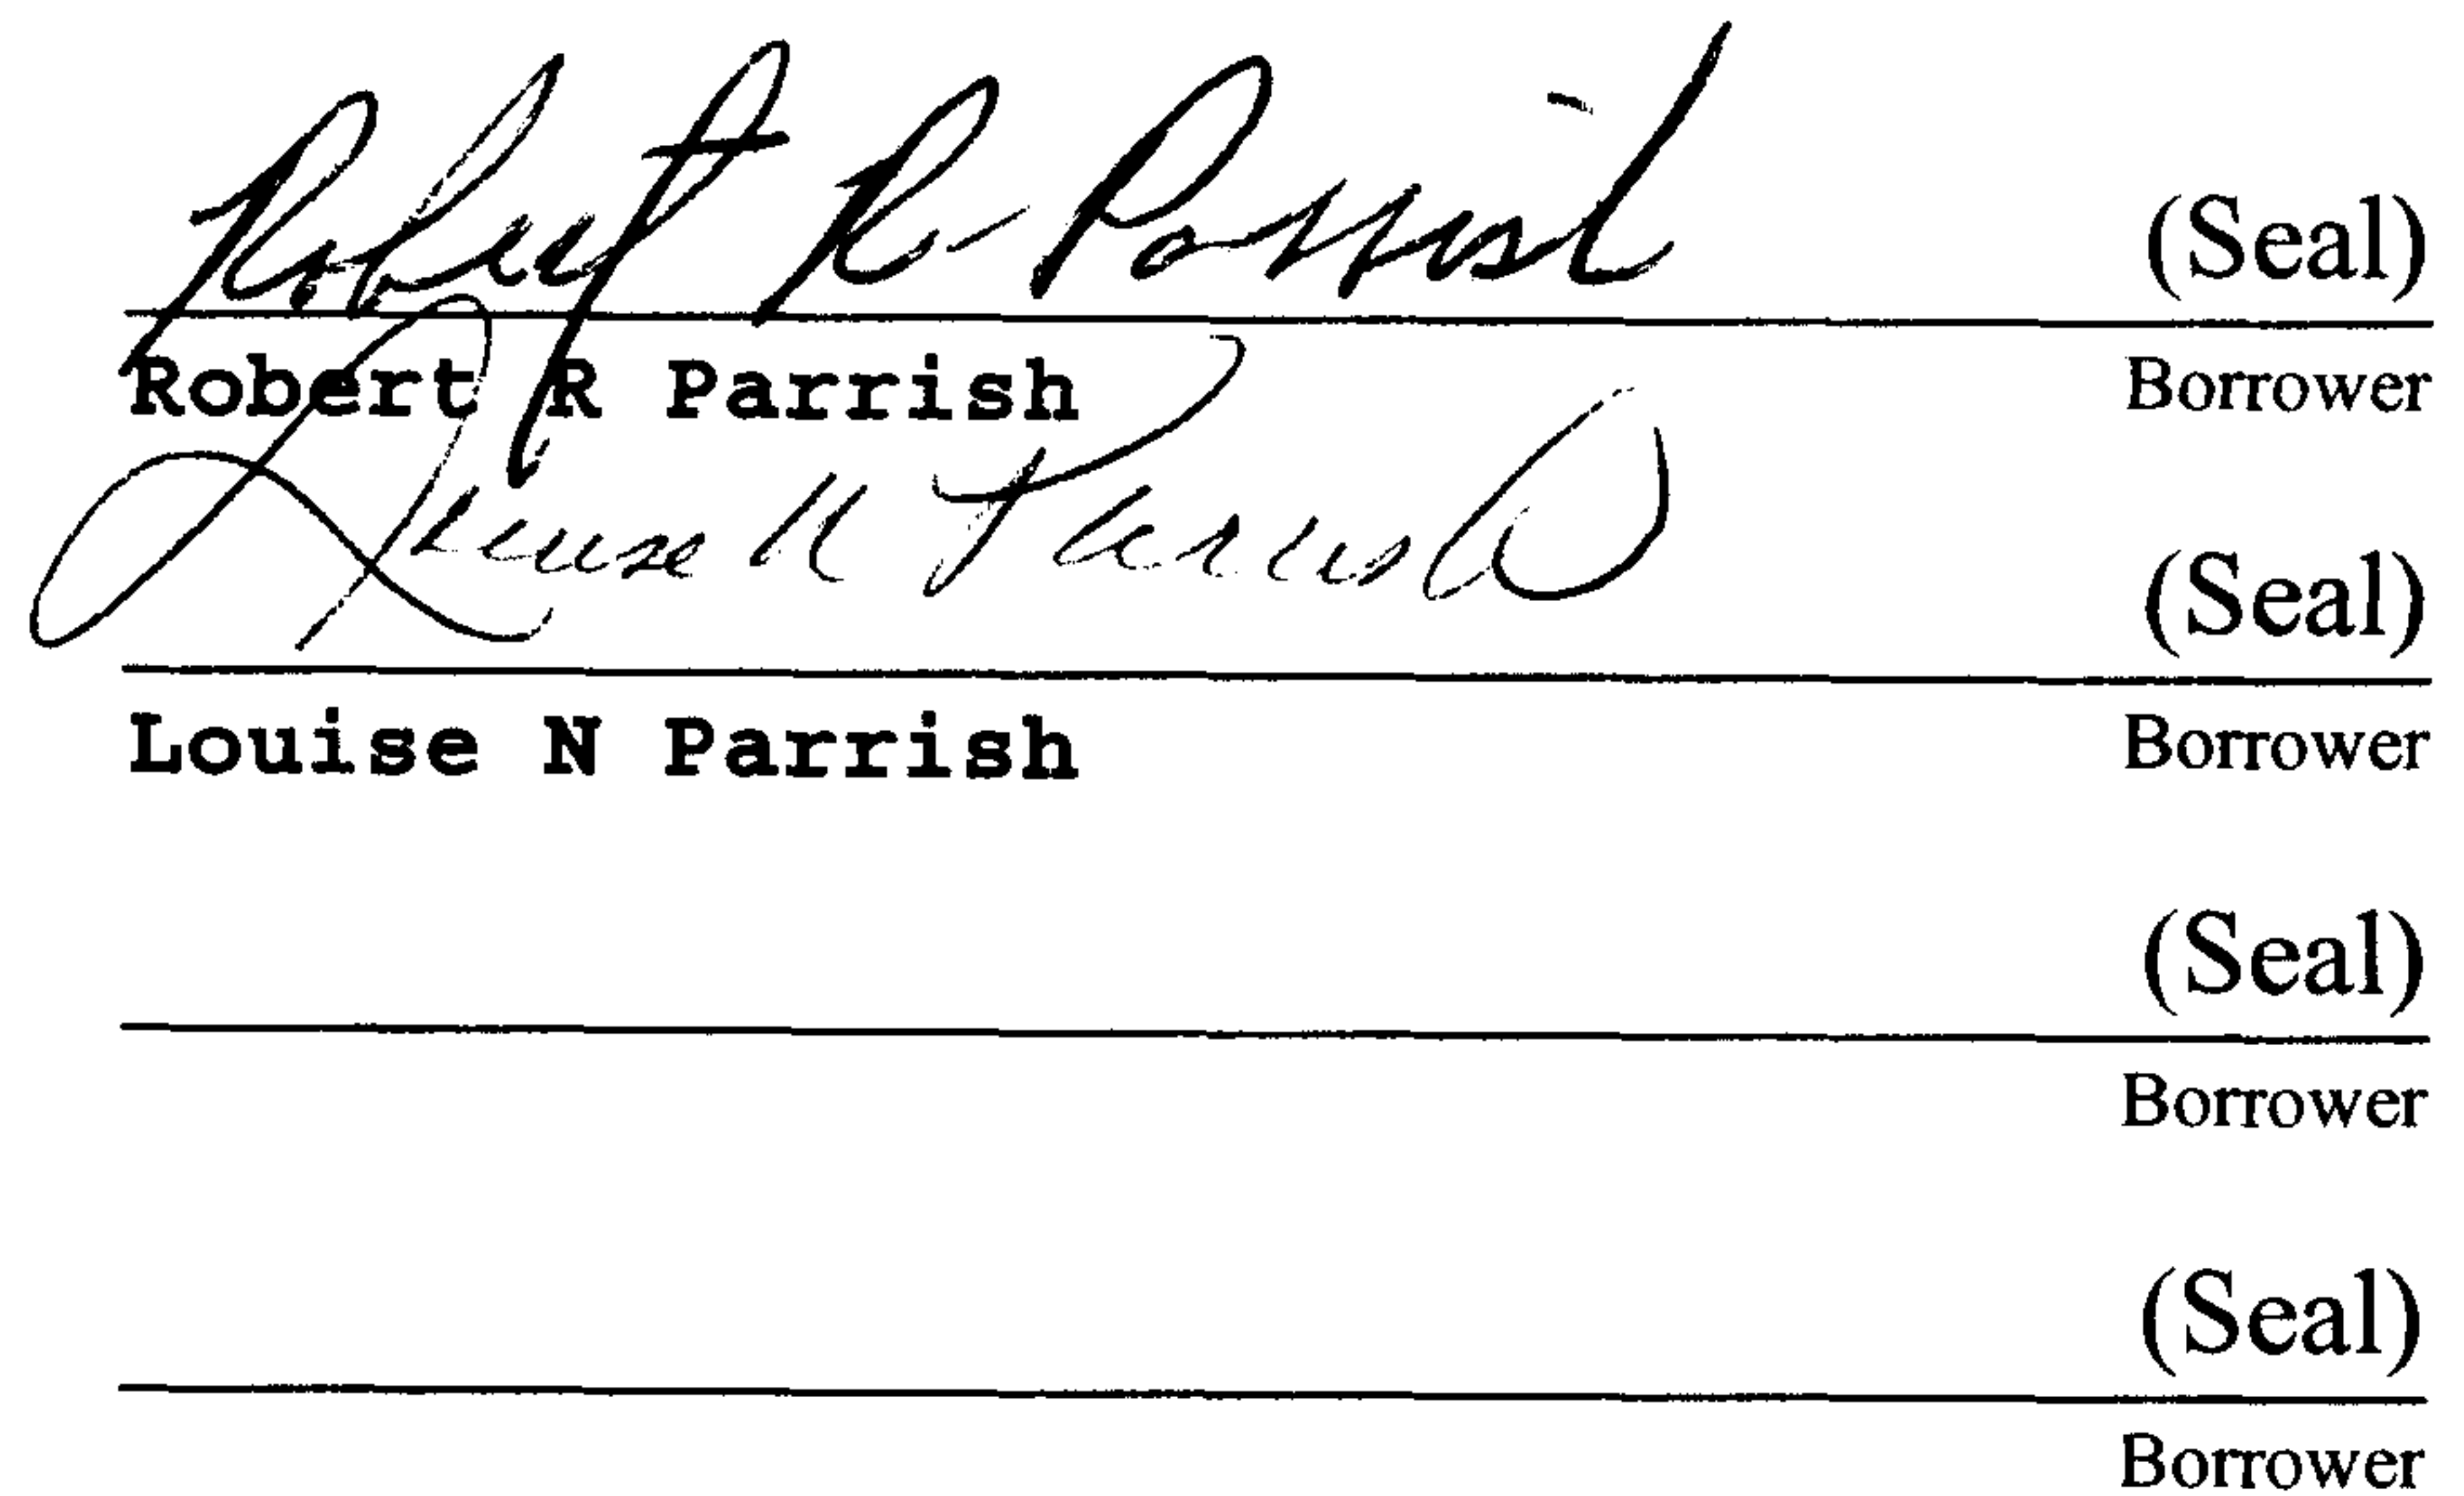 Robert R Parrish (Seal)
Robert R Parrish Borrower
Louise N Parrish (Seal)
Louise N Parrish Borrower
(Seal)
Borrower
(Seal)
Borrower